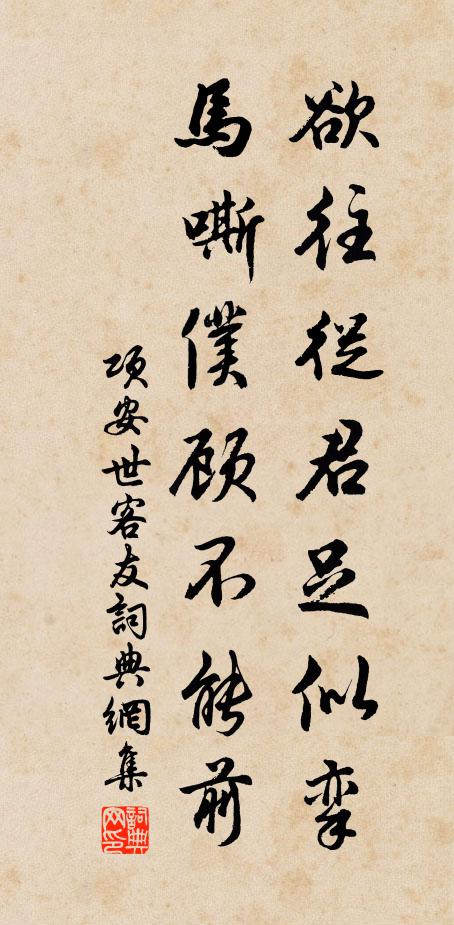 欲往從君足似挛
馬嘶僕顧不能前
項安世客友詞典網集
詞典網印